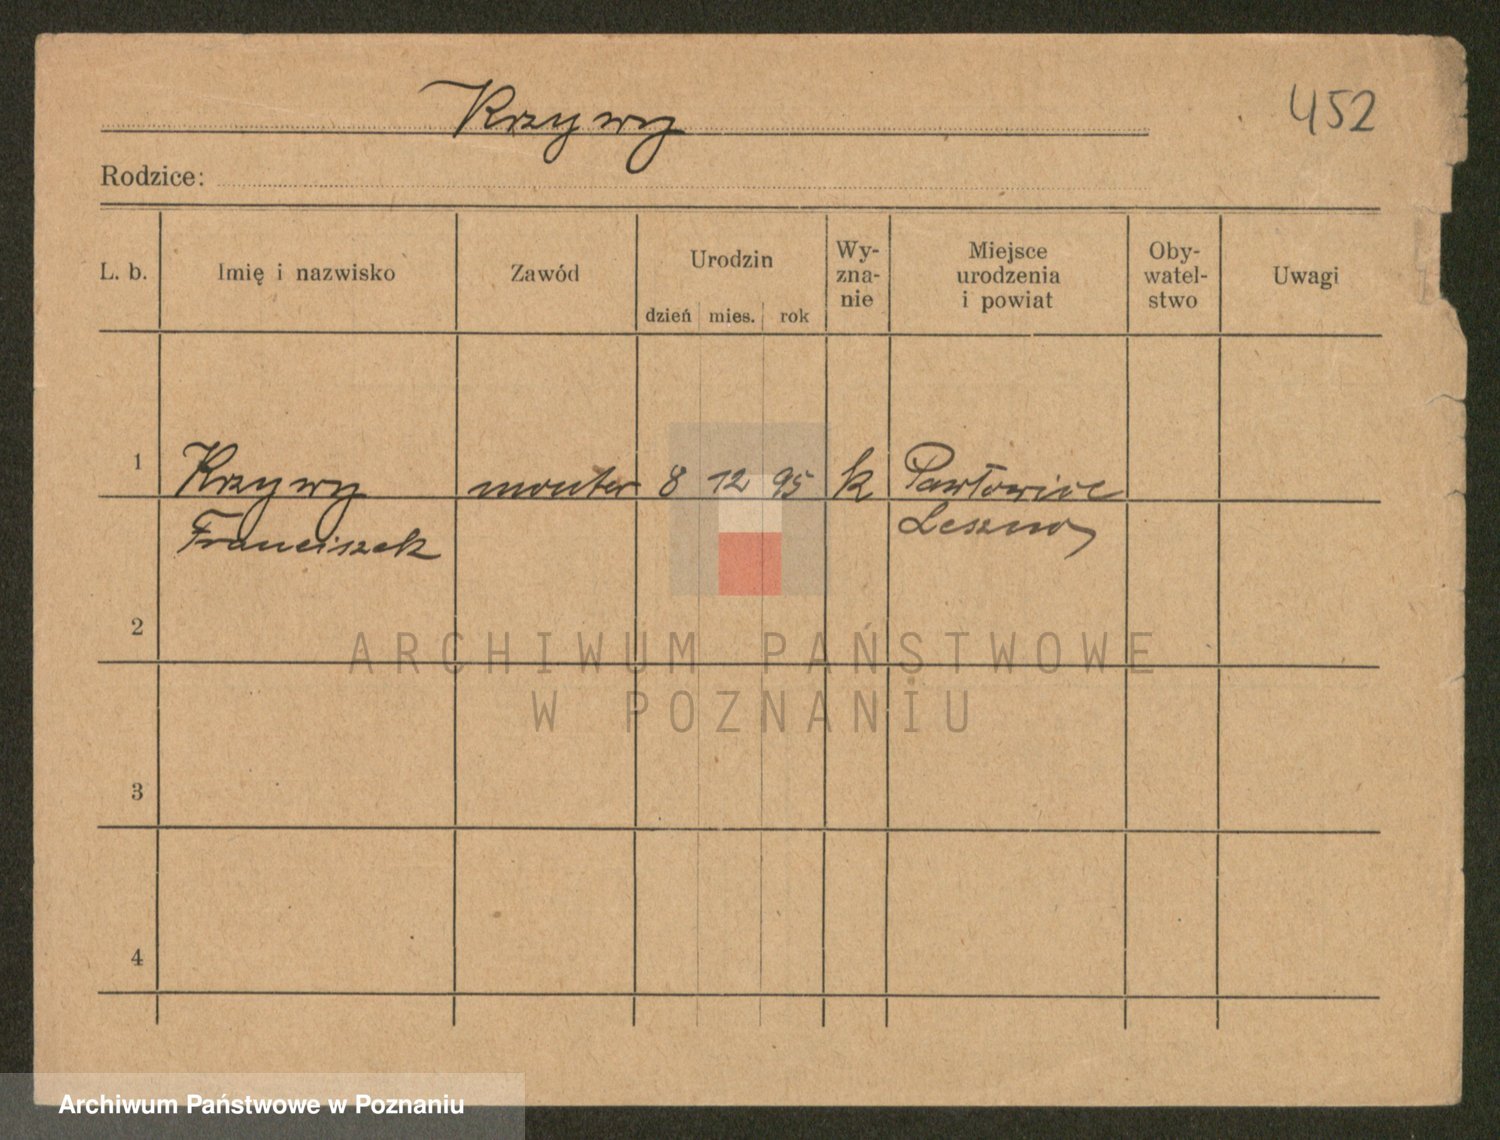 Krzywy
452
Rodzice:
L. b.
Imię i nazwisko
Zawód
Urodzin
dzień mies. rok
Wy-
zna-
nie
Miejsce
urodzenia
i powiat
Oby-
watel-
stwo
Uwagi
1 Krzywy monter 8 12 95 k Pawłowice
Franciszek Leszno
2
ARCHIWUM PAŃSTWOWE
W POZNANIU
3
4
Archiwum Państwowe w Poznaniu